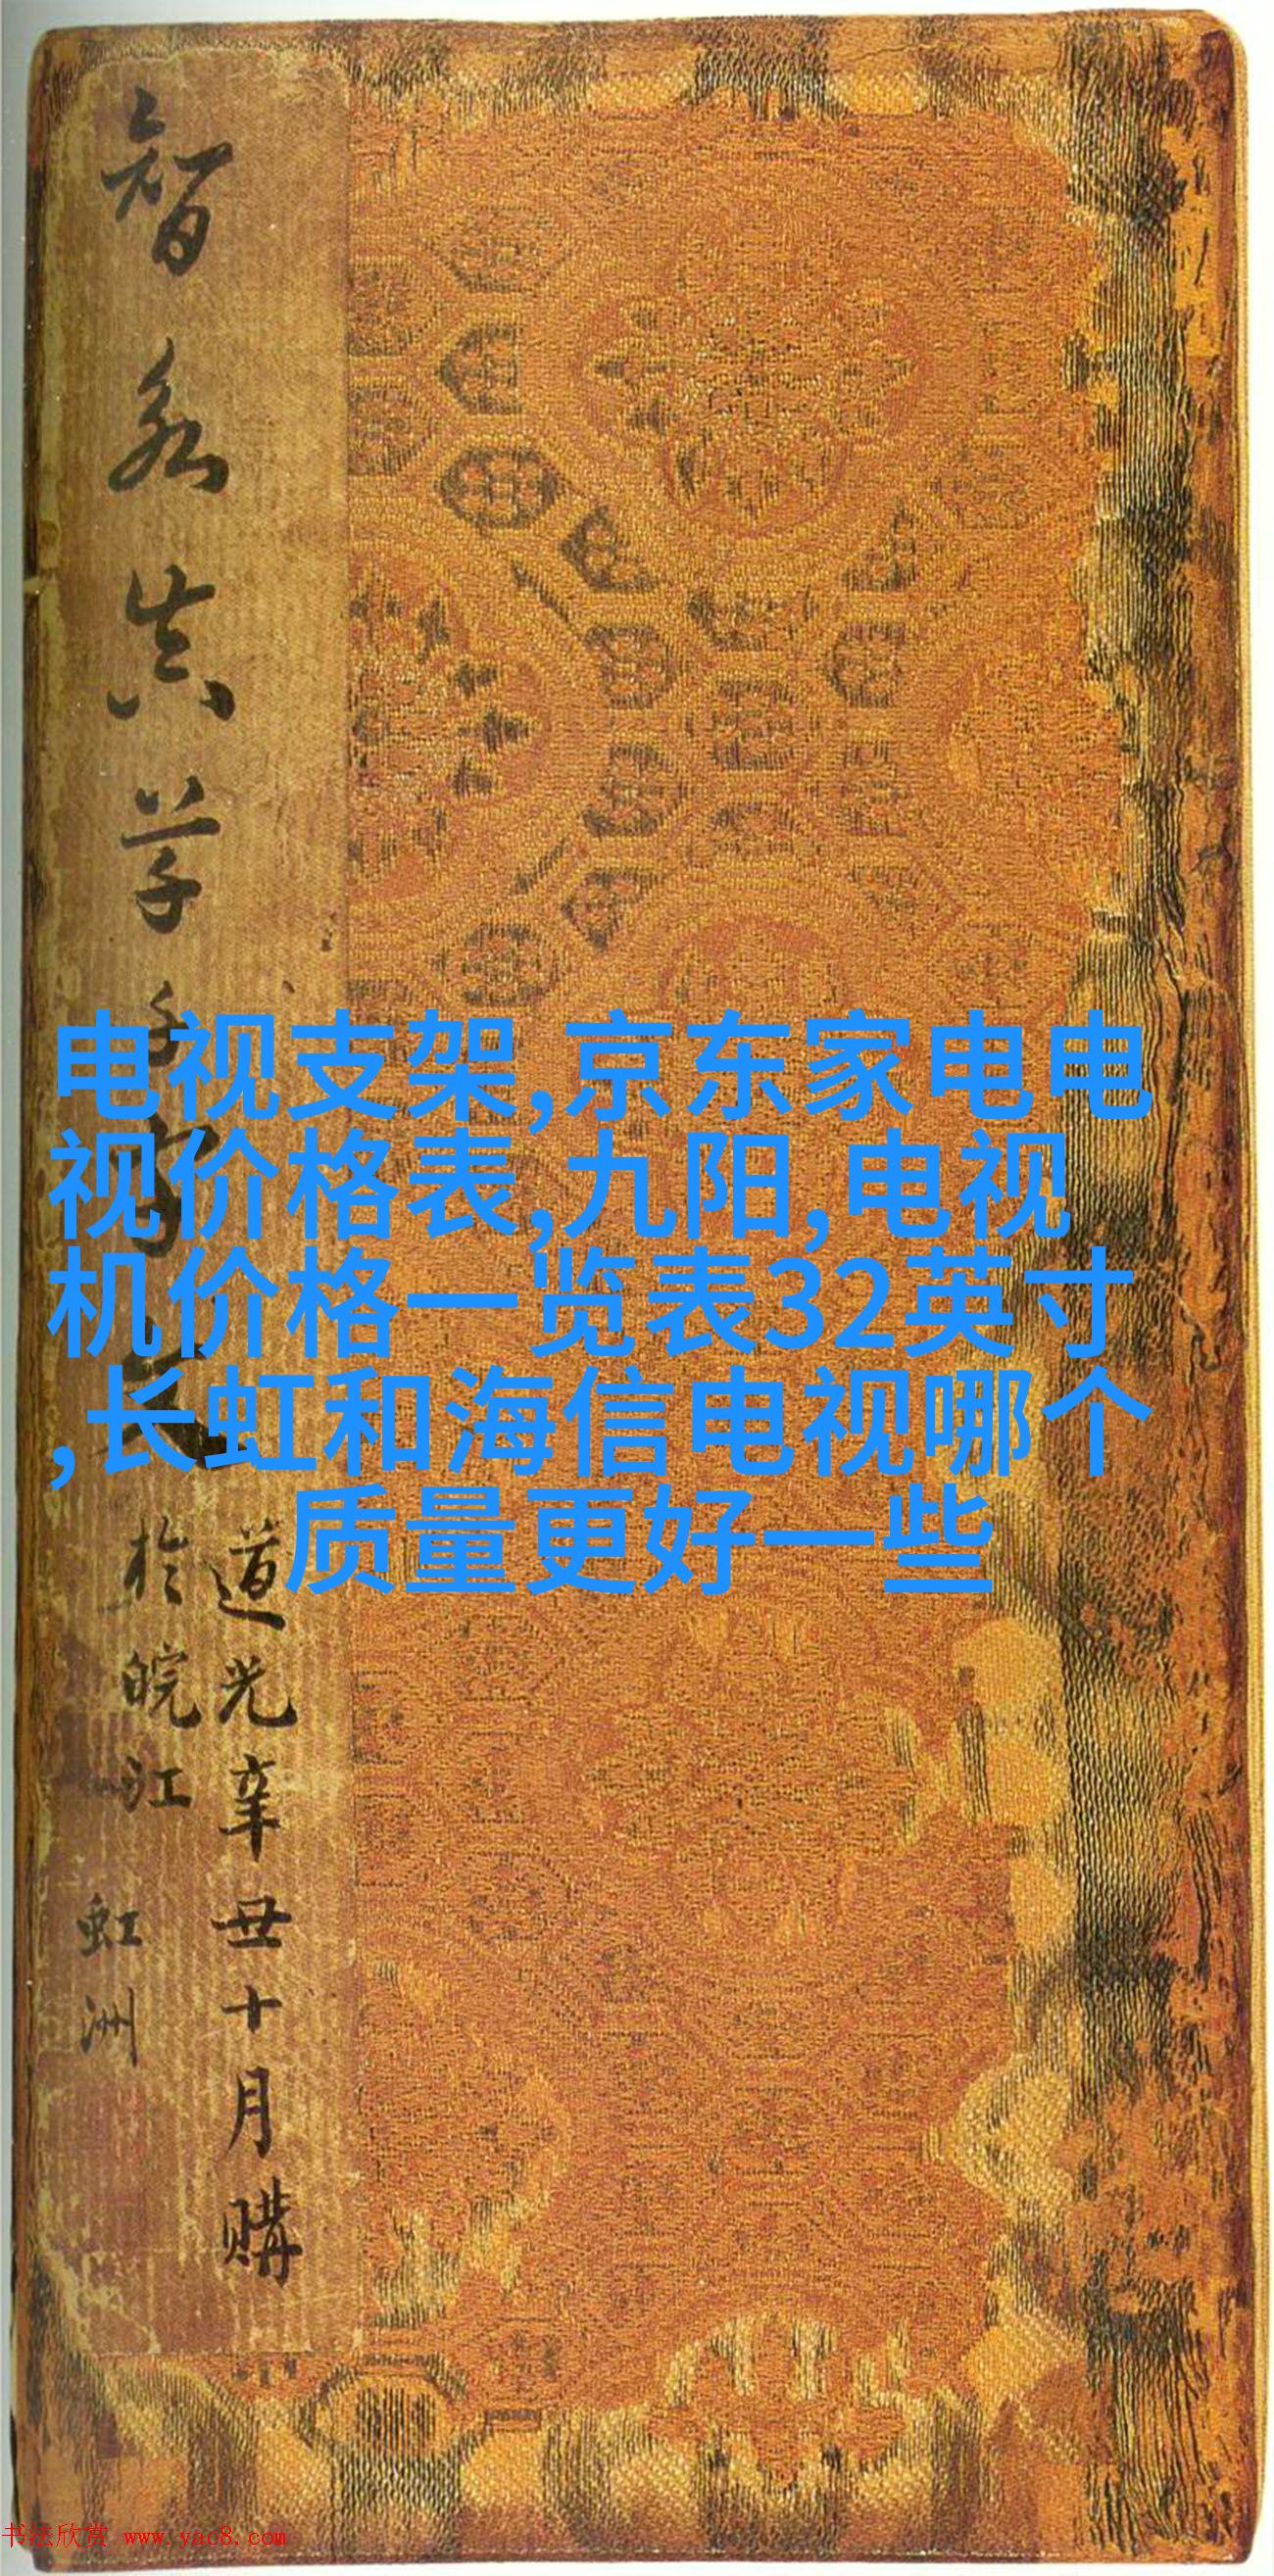 智永真草千字文
道光辛丑十月購
於皖江
虹洲
电视支架,京东家电电
视价格表,九阳,电视
机价格一览表32英寸
,长虹和海信电视哪个
质量更好一些
书法欣赏 www.yac8.com